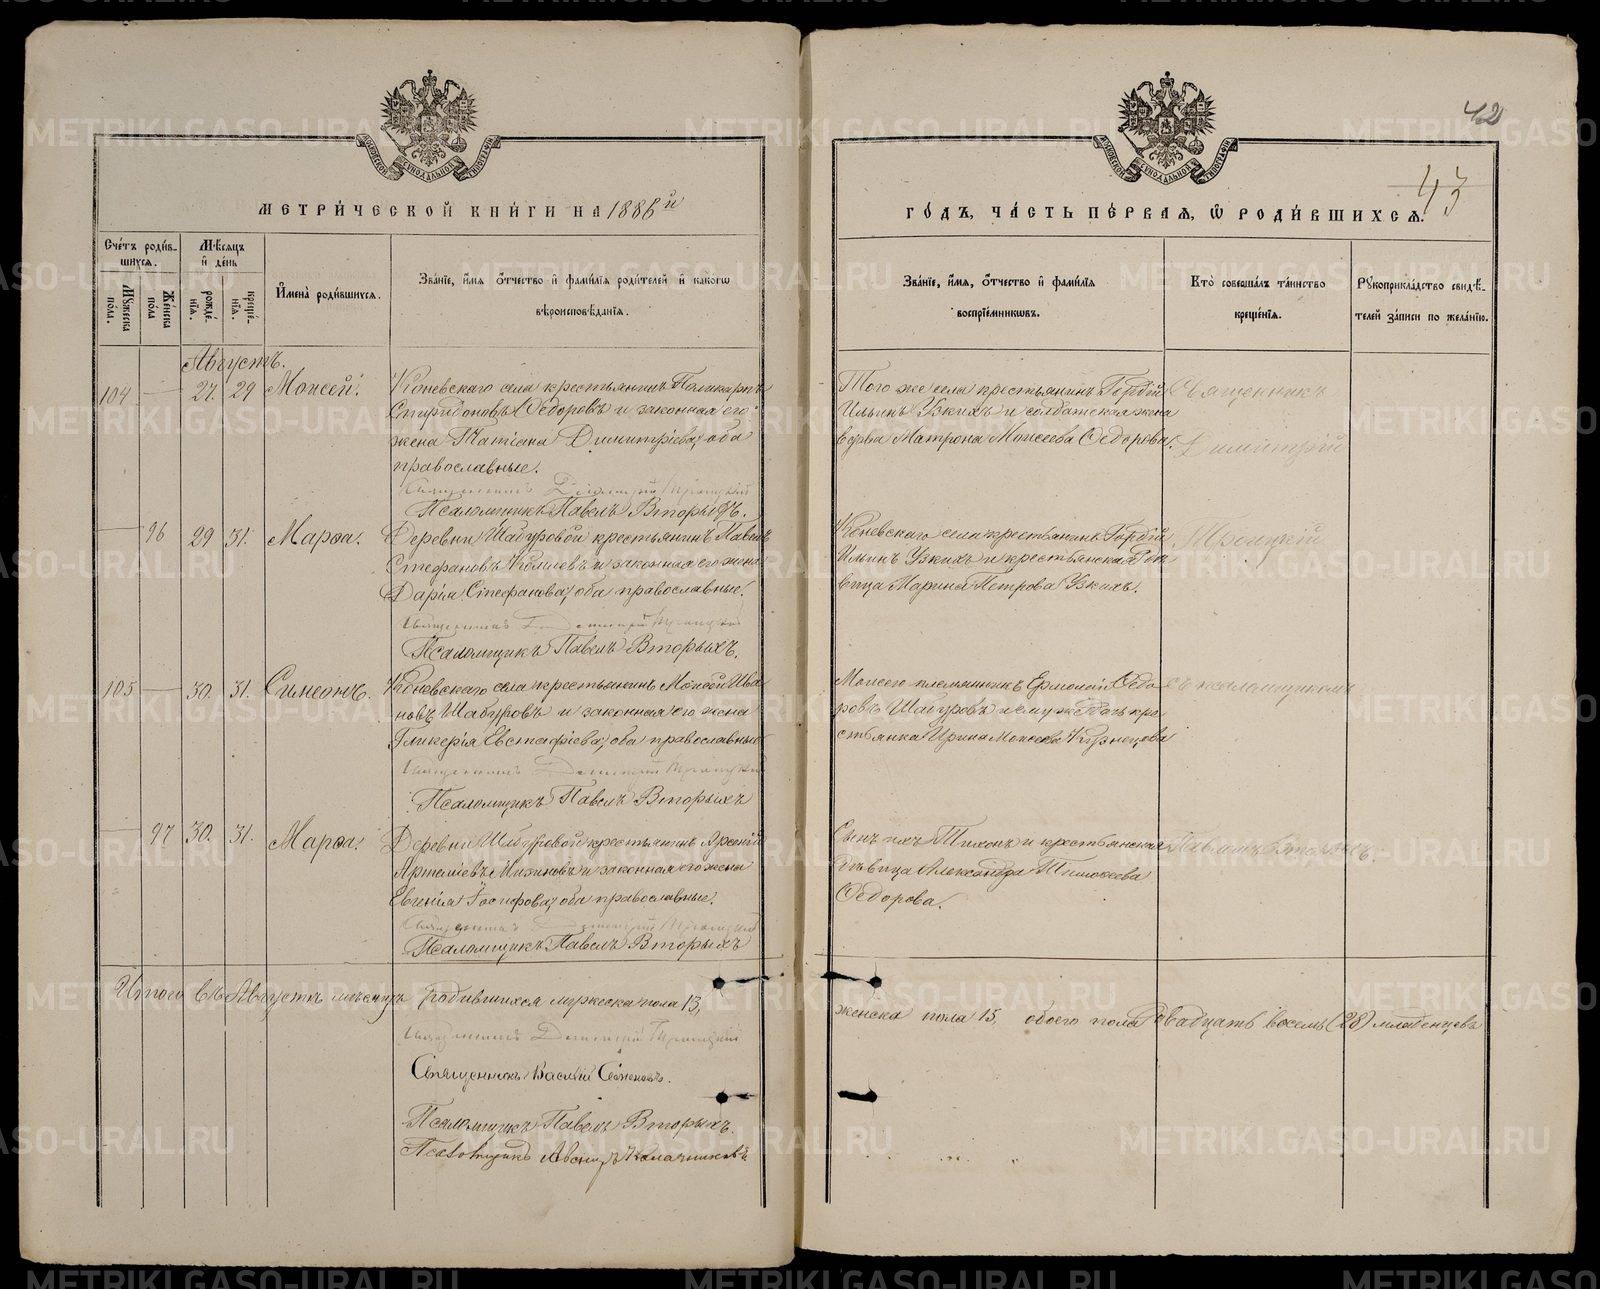 42
43
МЕТРИ́ЧЕСКОЙ КНИ́ГИ НА 1886й
ГО́ДЪ, ЧА́СТЬ ПЕ́РВАЯ, Ѡ҆ РОДИ́ВШИХСЯ.
Сче́тъ роди́в-
шихся.
Мѣ́сяцъ
и҆ де́нь
Му́жеска
по́ла.
Же́нска
пола
рожде́-
нїя.
креще́-
нїя.
И҆мена̀ роди́вшихся.
Зва́нїе, и҆́мя ѻ҆́тчество и҆ фами́лїя роди́телей и҆ како́гѡ
вѣроисповѣ́данїя.
Зва́нїе, и҆́мя, ѻ҆́тчество и҆ фами́лїя
воспрїе́мникѡвъ.
Кто̀ соверша́лъ та́инство
креще́нїя.
Рꙋкоприкла́дство свидѣ́-
телей за́писи по жела́нїю.
Августъ.
104 — 27. 29 Моисей.
Коневскаго села крестьянинъ Поликарпъ
Спиридоновъ Ѳедоровъ и законная его
жена Татіана Димитріева, оба
православные.
Священникъ Димитрій Троицкій
Псаломщикъ Павелъ Вторыхъ.
Того же села крестьянинъ Гордій
Ильинъ Узкихъ и солдатская жена
вдова Матрона Моисеева Ѳедорова.
Священникъ
Димитрій
— 96 29 31. Марѳа.
Деревни Шабуровой крестьянинъ Павелъ
Стефановъ и законная его жена
Дарія Стефанова, оба православные.
Священникъ Димитрій Троицкій
Псаломщикъ Павелъ Вторыхъ.
Коневскаго села крестьянинъ Гордій
Ильинъ Узкихъ и крестьянская дѣ-
вица Марина Петрова Узкихъ.
Троицкій
105 — 30. 31. Симеонъ.
Коневскаго села крестьянинъ Моисей Ива
новъ Шабуровъ и законная его жена
Гликерія Евстафіева, оба православные
Священникъ Димитрій Троицкій
Псаломщикъ Павелъ Вторыхъ
Моисего племянникъ Ермолай Ѳедо-
ровъ Шабуровъ и кре-
стьянка Ирина Моисеева Кузнецова
съ псаломщикомъ
— 97 30. 31. Марѳа.
Деревни Шабуровой крестьянинъ Арсеній
Артеміевъ Мизиновъ и законная его жена
Евгенія Іосифова, оба православные.
Священникъ Димитрій Троицкій
Псаломщикъ Павелъ Вторыхъ
Сынъ ихъ Тихонъ и крестьянская
дѣвица Александра Тимоѳеева
Ѳедорова.
Павломъ Вторыхъ.
Итого въ Августѣ мѣсяцѣ родившихся мужеска пола 13,
женска пола 15, обоего пола двадцать восемь (28) младенцевъ
Священникъ Димитрій Троицкій
Священникъ Василій Семеновъ.
Псаломщикъ Павелъ Вторыхъ.
Псаломщикъ Авениръ Калачниковъ
METRIKI.GASO-URAL.RU